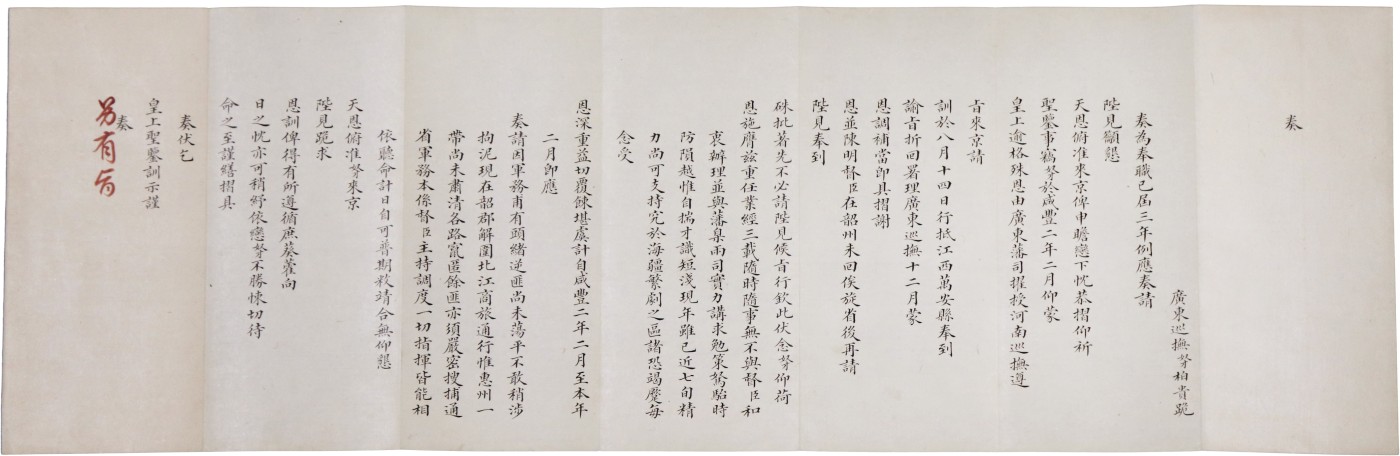 奏
廣東巡撫奴才柏貴跪
奏為奉職已屆三年例應奏請
陛見籲懇
天恩俯准來京俾申瞻戀下忱恭摺仰祈
聖鑒事竊奴才於咸豐二年二月仰蒙
皇上逾格殊恩由廣東藩司擢授河南巡撫遵
旨來京請
訓於八月十四日行抵江西萬安縣奉到
諭旨折回署理廣東巡撫十二月蒙
恩調補當即具摺謝
恩並陳明督臣在韶州未回俟旋省後再請
陛見奉到
硃批著先不必請陛見候旨行欽此伏念奴才仰荷
恩施膺茲重任業經三載隨時隨事無不與督臣和
衷辦理並與藩臬兩司實力講求勉策駑駘時
防隕越惟自揣才識短淺現年雖已近七旬精
力尚可支持究於海疆繁劇之區諸恐竭蹷每
念受
恩深重益切覆餗堪虞計自咸豐二年二月至本年
二月即應
奏請因軍務甫有頭緒逆匪尚未蕩平不敢稍涉
拘泥現在韶郡解圍北江商旅通行惟惠州一
帶尚未肅清各路竄匿餘匪亦須嚴密搜捕通
省軍務本係督臣主持調度一切指揮皆能相
依聽命計日自可普期救靖合無仰懇
天恩俯准奴才來京
陛見跪求
恩訓俾得有所遵循庶葵藿向
日之忱亦可稍紓依戀奴才不勝悚切待
命之至謹繕摺具
奏伏乞
皇上聖鑒訓示謹
奏
另有旨